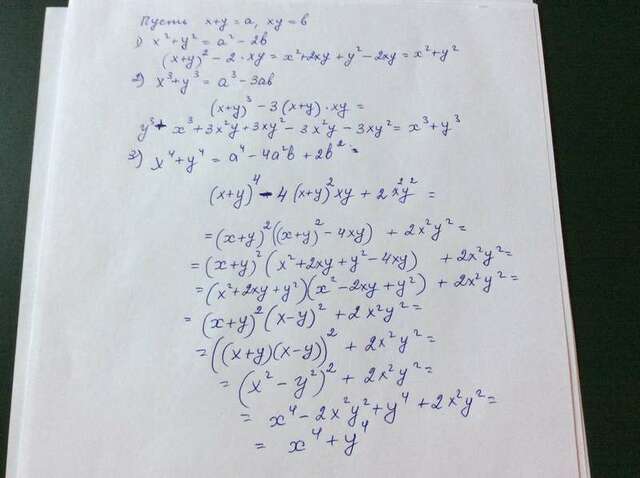 Пусть x+y = a, xy = b
1) x² + y² = a² - 2b
(x+y)² - 2·xy = x² + 2xy + y² - 2xy = x² + y²
2) x³ + y³ = a³ - 3ab
(x+y)³ - 3(x+y)·xy =
y³ + x³ + 3x²y + 3xy² - 3x²y - 3xy² = x³ + y³
3) x⁴ + y⁴ = a⁴ - 4a²b + 2b² =
(x+y)⁴ - 4(x+y)²xy + 2x²y² =
= (x+y)²((x+y)² - 4xy) + 2x²y² =
= (x+y)²(x² + 2xy + y² - 4xy) + 2x²y² =
= (x² + 2xy + y²)(x² - 2xy + y²) + 2x²y² =
= (x+y)²(x-y)² + 2x²y² =
= ((x+y)(x-y))² + 2x²y² =
= (x² - y²)² + 2x²y² =
= x⁴ - 2x²y² + y⁴ + 2x²y² =
= x⁴ + y⁴